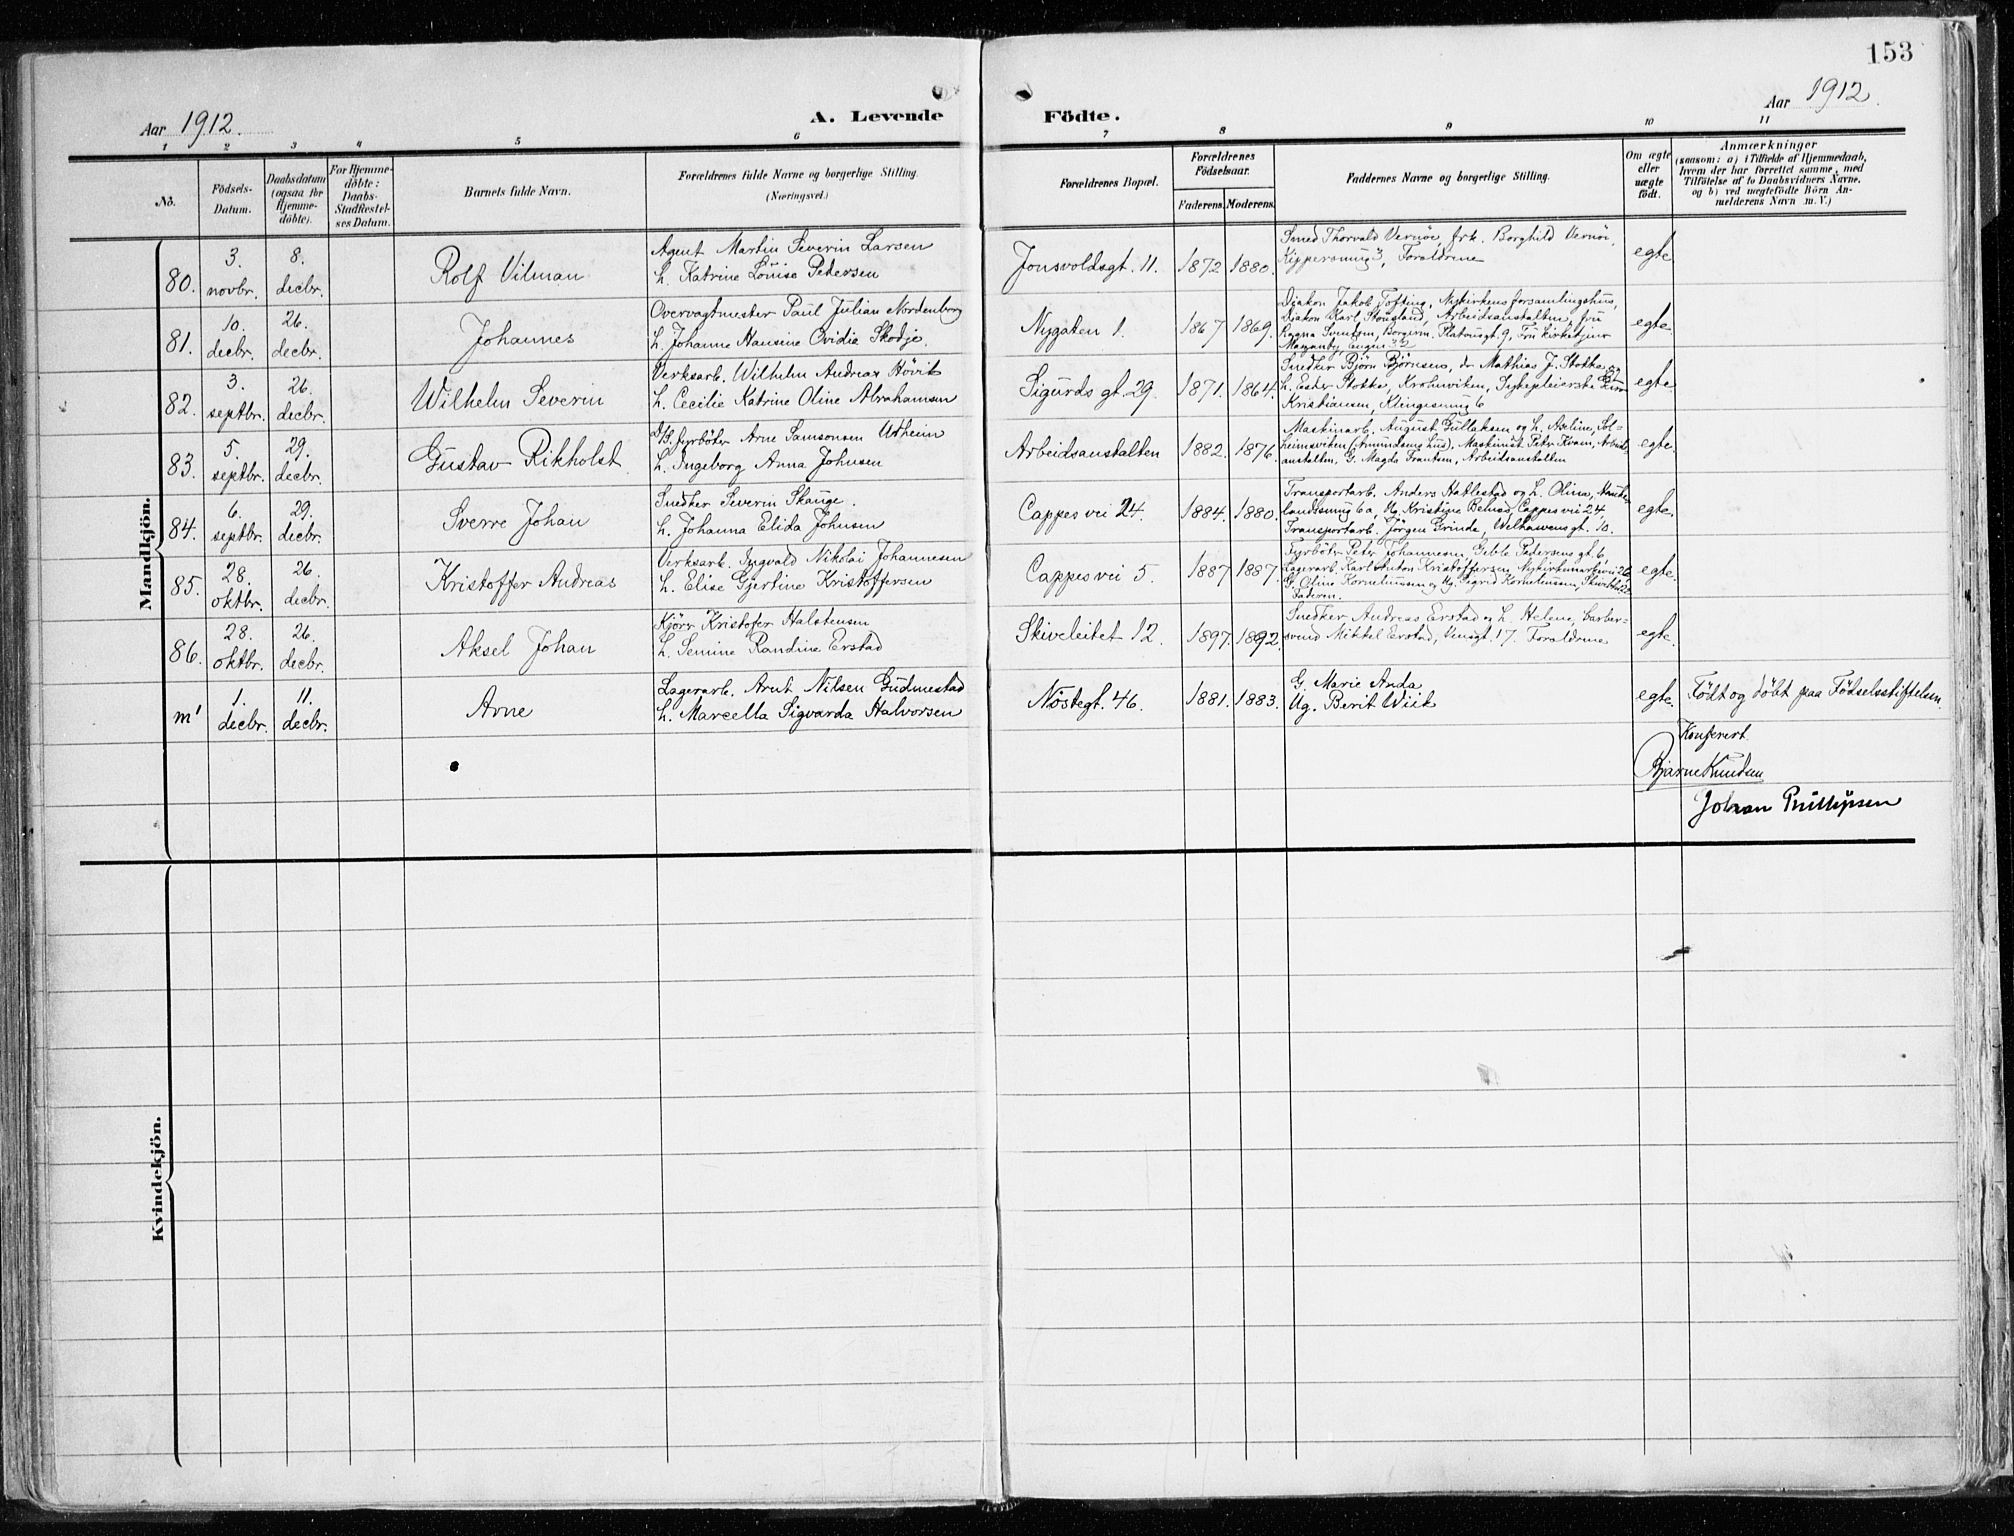 153
Aar 1912.
A. Levende Födte.
Aar 1912.
1 2 3 4 5 6 7 8 9 10 11
No.
Födsels-Datum.
Daabsdatum (ogsaa for Hjemme-döbte).
For Hjemme-döbte: Daabs-Stadfæstel-ses Datum.
Barnets fulde Navn.
Forældrenes fulde Navne og borgerlige Stilling. (Næringsvei.)
Forældrenes Bopæl.
Forældrenes Födselsaar.
Faderens. Moderens.
Faddernes Navne og borgerlige Stilling.
Om ægte eller uægte födt.
Anmærkninger
(saasom: a) i Tilfælde af Hjemmedaab,
hvem der har forrettet samme, med
Tilföielse af to Daabsvidners Navne.
og b) ved uægtefödte Börn An-
melderens Navn m. V.)
Mandkjön.
80. 3. novbr. 8. decbr. Rolf Vilman
Agent Martin Severin Larsen
h. Katrine Louise Pedersen
Jonsvoldsgt. 11. 1872 1880.
Smed Thorvald Vernøe, frk. Borghild Vernöe,
Kippersmug 3, Forældrene
egte
81. 10. decbr. 26. decbr. Johannes
Overvagtmester Paul Julian Nordenborg
h. Johanne Hansine Ovidia Skodje.
Nygaten 1. 1867 1869.
Diakon Jakob Tofting, Nykirkens forsamlingshus,
Diakon Karl Arbeidsanstalten, fru
Ragna Svendsen, Platousgt. 9, Fru Kirketjener
egte
82. 3. septbr. 26. decbr. Wilhelm Severin
Verksarb. Wilhelm Andreas Hövik
h. Cecilie Katrine Oline Abrahamsen
Sigurds gt. 29. 1871. 1864.
Snedker Björn Björnsen, do Mathias J. Stokke og
h. Ester Stokke, Krohnviken, Sykepleierske
Kristiansen, Klingesmug 6
egte
83. 5. septbr. 29. decbr. Gustav Rikholst.
D/S. fyrböter Arne Samsonsen Utheim
h. Ingeborg Anna Johnsen
Arbeidsanstalten 1882. 1876.
Maskinarb. August Gullaksen og h. Axeline, Sol-
heimsviken (Amundsens hus). Maskinist Petr Kvam, Arbeids-
anstalten, G. Magda Frantsen, Arbeidsanstalten
egte
84. 6. septbr. 29. decbr. Sverre Johan
Snedker Severin Skauge.
h. Johanna Elida Johnsen
Cappes vei 24. 1884. 1880.
Transportarb. Anders Hatlestad og h. Olina,
landsmug 6a, Ug. Kristine Cappes vei 24,
Transportarb. Jörgen Grinde, Welhavensgt. 10.
egte.
85. 28. oktbr. 26. decbr. Kristoffer Andreas
Verksarb. Ingvald Nikolai Johannesen
h. Elise Gjertine Kristoffersen
Cappes vei 5. 1887 1887.
Fyrböter Peter Johannesen, Geble Pedersens gt. 6,
Lagerarb. Karl Anton Kristoffersen, Nykirkemarksvei
G. Oline Korneliussen og Ug. Sigrid Korneliussen,
Faderen.
egte.
86. 28. oktbr. 26. decbr. Aksel Johan
Kjörer Kristofer Halstensen
h. Semine Randine Erstad
Skiveleitet 12. 1897. 1892.
Snedker Andreas Erstad og h. Helene, barber-
svend Mikkel Erstad, 17. Forældrene
egte.
m' 1. decbr. 11. decbr. Arne
Lagerarb. Arnt Nilsen Gudmestad
h. Marcella Sigvarda Halvorsen
Nöstegt. 46. 1881. 1883.
G. Marie Anda
Ug. Berit Wiik
egte. Födt og döbt paa Födselsstiftelsen.
Konferert.
Bjarne Knudsen
Johan Phillipsen
Kvindekjön.